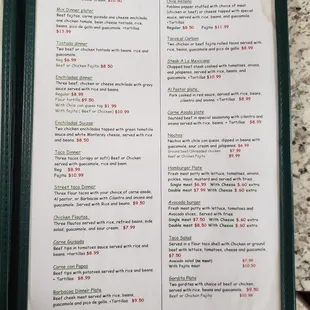 Mix Dinner plate
Beef fajitas, carne guisada and cheese enchilada
one chicken enchilada, one chalupa, rice, beans,
pico de gallo and guacamole +tortillas
$13.99
Tostada dinner
Two beef or chicken tostada with beans, rice and
guacamole.
Reg $6.99
Beef or Chicken Fajita $8.50
Enchiladas dinner
Three enchiladas cheese, beef or chicken with gravy
sauce served with rice and beans
Regular $8.99
Flour tortilla $9.50
With Chile con queso top $1.99
With Fajita (Beef or Chicken) $10.99
Enchiladas Suizas
Two chicken enchiladas topped with green tomatillo
sauce and white Monterey cheese, served with rice
and beans $8.50
Taco Dinner
Three tacos (crispy or soft) Beef or Chicken
served with guacamole, rice and bean.
Reg $8.99
Fajita $10.99
Street taco Dinner
Three flour tacos with your choice of carne asada,
Al pastor, or Barbacoa with Cilantro and onions and
guacamole. Served with Rice and beans $9.50
Chicken Flautas
Three flautas served with rice, refried beans, side
salad, guacamole, and sour cream. $7.99
Carne Guisada
Beef tips in tomatoes sauce served with rice and
beans. +tortillas $8.99
Carne con Papas
Beef tips with potatoes served with rice and beans.
+ Tortillas $8.99
Barbacoa Dinner Plate
Beef cheek meat served with rice, beans,
guacamole and pico de gallo. + tortillas $9.50
Chile Relleno
Poblano pepper stuffed with choice of meat
served with rice, beans, and guacamole
+Tortillas
Regular $8.50 Fajita $11.99
Tacos al Carbon
Two Chicken or beef fajita tacos served with rice,
beans, guacamole, and pico de gallo. $8.99
Steak A La Mexicana
Chopped beef steak cooked with tomatoes, onions,
and jalapenos, served with rice, beans, and
guacamole. + tortillas $10.50
Al Pastor plate
Pork cooked in red sauce, served with rice, beans,
cilantro and onions. +Tortillas $8.99
Carne Asada plate
Sauteed beef in special seasoning with cilantro and
onions. served with rice and beans +Tortillas
$8.99
Nachos
Nachos with chile con queso dipped in beans with
guacamole, sour cream and jalapenos. $6.99
Ground beef/Shredded chicken $7.99
Beef or Chicken Fajita $9.99
Hamburger Plate
Fresh meat patty with lettuce, tomatoes, onions,
pickles, mayo, mustard and served with fries.
Single meat $6.99 With Cheese $.60 extra
Double meat $7.99 With Cheese $.60 extra
Avocado burger
Fresh meat patty with lettuce, tomatoes and
Avocado slices. Served with fries.
Single meat $7.50 With Cheese $.60 extra
Double meat $8.50 With Cheese $.60 extra
Taco Salad
Served in a flour taco shell with Chicken or ground
beef with lettuce, tomatoes, cheese and guacamole
$7.50
Avocado salad (no meat) $7.99
With Fajita Meat $10.50
Gordita Plate
Two gorditas with choice of beef or chicken,
served with rice and beans. $8.99
Beef or Chicken Fajita $10.99